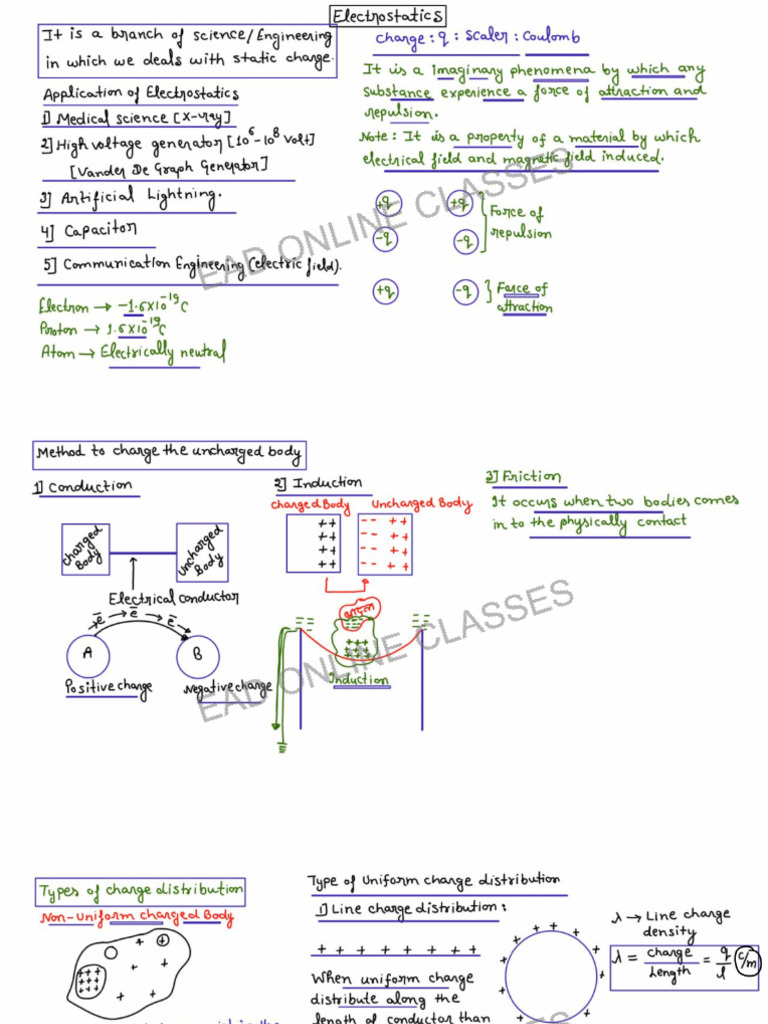 Electrostatics
It is a branch of science/Engineering
in which we deals with static charge.
Application of Electrostatics
1] Medical science [X-ray]
2] High voltage generator [10⁶-10⁸ volt]
[Vander De Graph Generator]
3] Artificial Lightning.
4] Capacitor
5] Communication Engineering (electric field).
Electron → -1.6×10⁻¹⁹C
Proton → 1.6×10⁻¹⁹C
Atom → Electrically neutral
Charge : q : Scaler : Coulomb
It is a imaginary phenomena by which any
substance experience a force of attraction and
repulsion.
Note: It is a property of a material by which
electrical field and magnetic field induced.
+q +q
-q -q
Force of
repulsion
+q -q
Force of
attraction
EAD ONLINE CLASSES
Method to charge the uncharged body
1] Conduction
Charged
Body
Uncharged
Body
Electrical conductor
e̅ → e̅ → e̅ →
A B
Positive charge Negative charge
2] Induction
Charged Body Uncharged Body
++ -- ++
++ -- ++
++ -- ++
++ -- ++
बादल
Induction
3] Friction
It occurs when two bodies comes
in to the physically contact
EAD ONLINE CLASSES
Types of charge distribution
Non-uniform charged Body
Type of Uniform charge distribution
1] Line charge distribution:
+ + + + + + + +
When uniform charge
distribute along the
length of conductor than
λ → Line charge
density
λ = charge/Length = q/l (C/m)